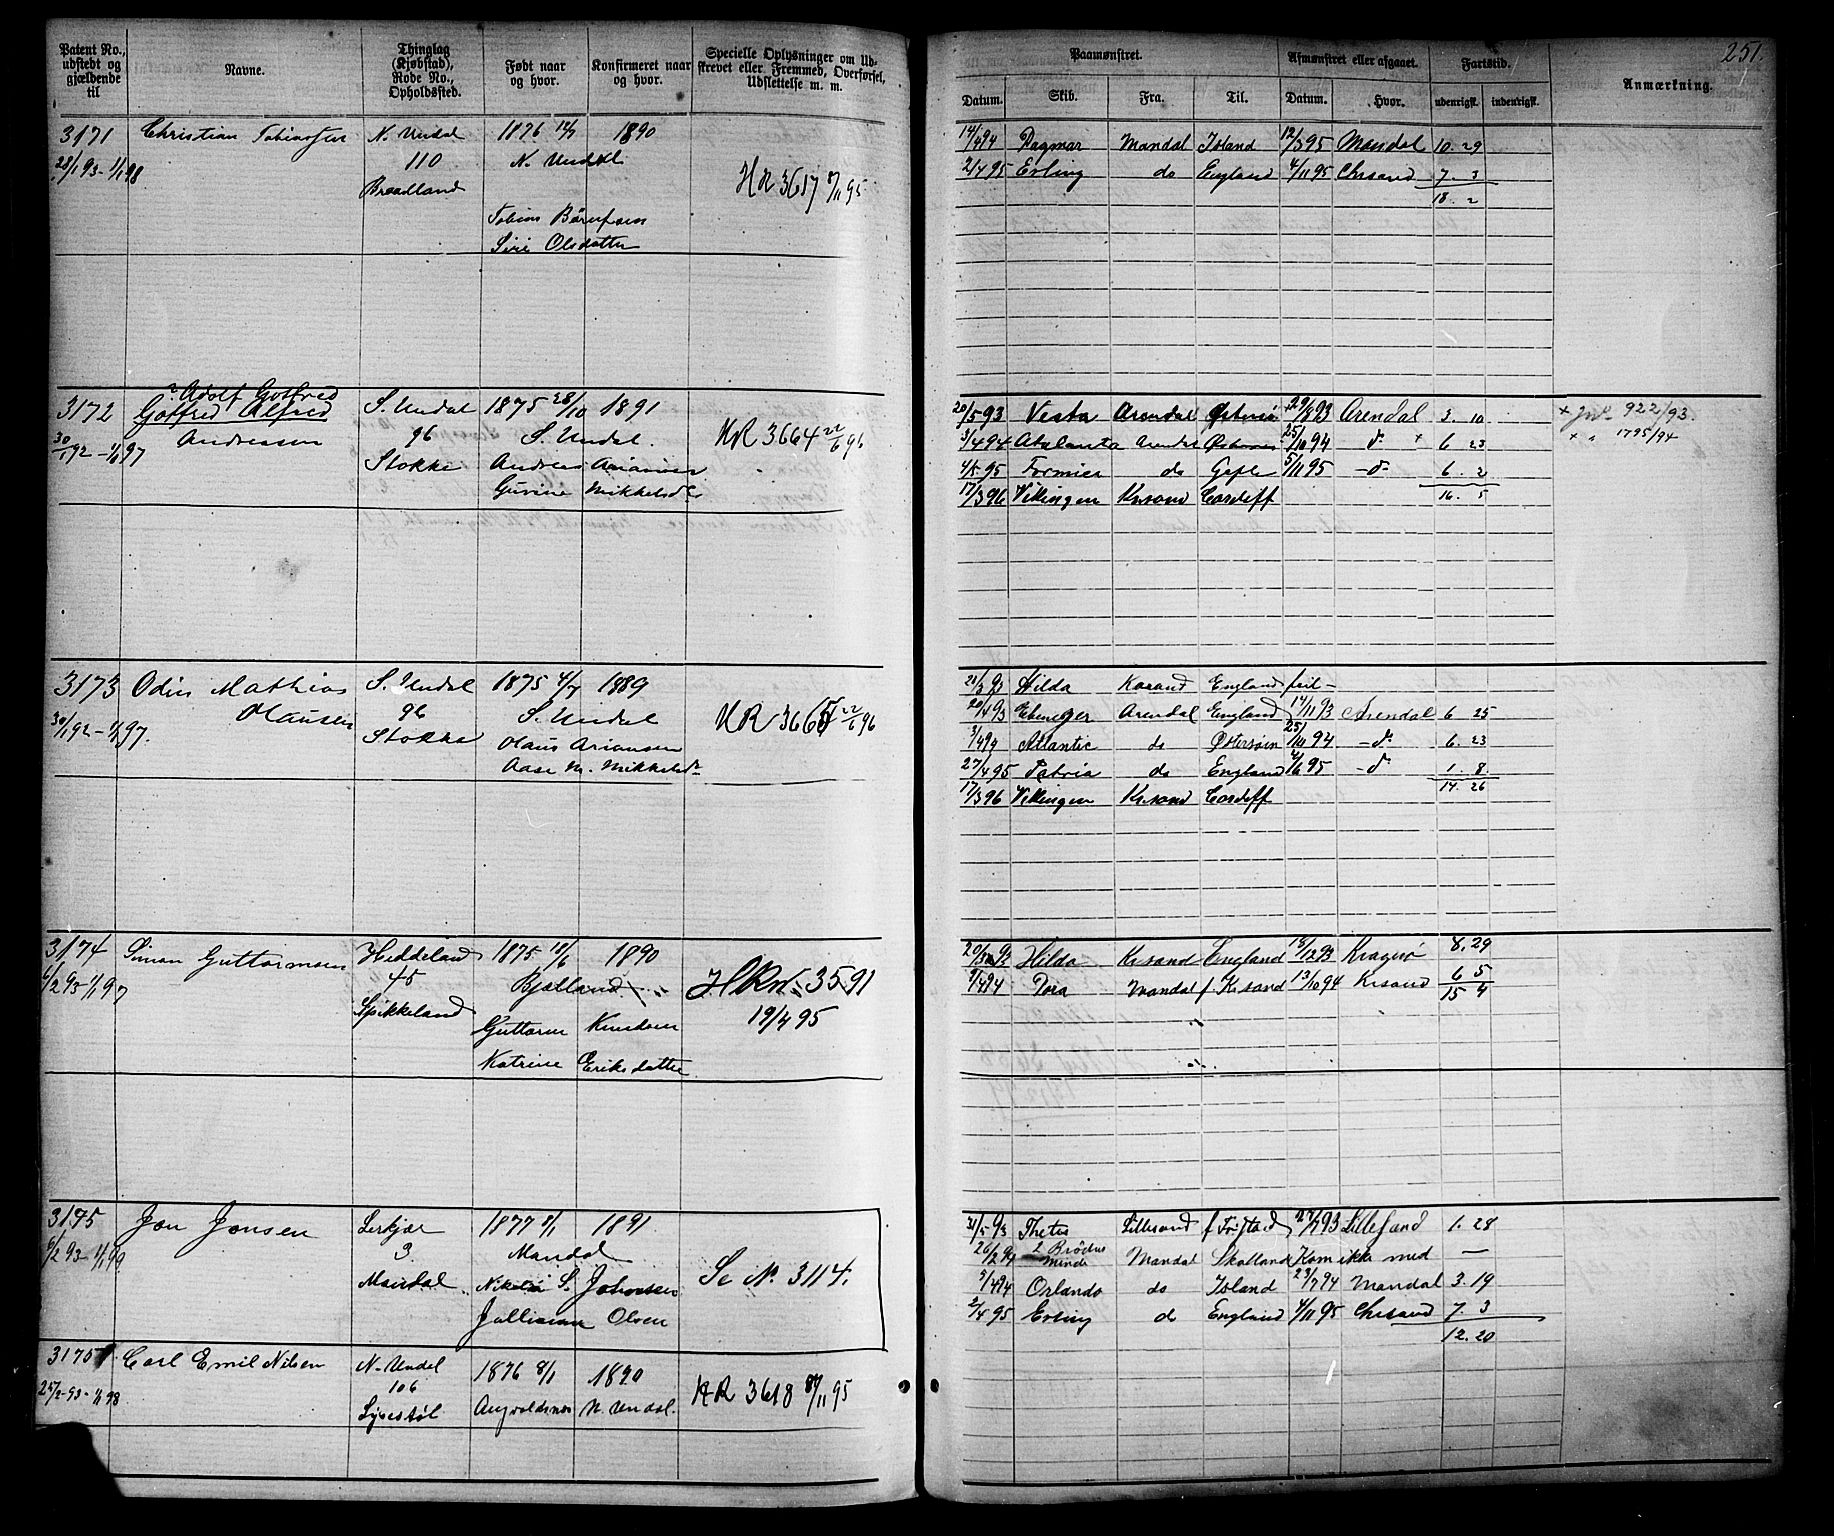 Patent No., udstedt og gjældende til
Navne.
Thinglag (Kjøbstad), Rode No., Opholdssted.
Født naar og hvor.
Konfirmeret naar og hvor.
Specielle Oplysninger om Udskrevet eller Fremmed, Overførsel, Udslettelse m. m.
3171 Christian Tobiassen N. Undal 1876 1890
28/1 93 - 1/1 98 110 N. Undal
Breadland HR 3617 95
Tobias
Siri Olsdatter
Adolf Gotfred
3172 Gotfred Alfred S. Undal 1875 28/10 1891
Andreassen 96 S. Undal. HR 3664 22/6 96
30/1 92 - 1/1 97 Stokke Andreas
Guvine Mikkelsd
3173 Odin Mathias S. Undal 1875 4/7 1889
Olausen 96 S. Undal HR 3665 22/6 96
30/1 92 - 1/1 97. Stokke Olaus Ariansen
Aase M. Mikkelsd
3174 Simon Guttormsen Heddeland 1875 18/6 1890
6/2 93 - 1/1 97 45 Bjelland HRN 3591
Spikkeland Guttorm Knudsen 19/4 95
Katrine Eriksdatter
3175 Jon Jonsen 1877 1891
6/2 93 - 1/1 99 3 Mandal
Mandal S. Johnsen Se N. 3114.
Olsen
3175 Carl Emil Nilsen N. Undal 1876 8/1 1890
25/2 93 - 1/1 98 106 N. Undal. HR 3618 95
251.
Paamønstret.
Afmønstret eller afgaaet.
Fartstid.
Anmærkning.
Datum. Skib. Fra. Til. Datum. Hvor. udenrigsk. indenrigsk.
14/4 94 Dagmar Mandal Island 12/3 95 Mandal 10. 29
2/4 95 Erling do England 4/11 95 Chrsand 7. 3
18. 2
20/5 93 Vesta Arendal 29/8 93 Arendal 3. 10 922/93.
3/4 94 Atalanta 25/10 94 do + 6 23 1795/94
4/5 95 Formica do Gefle 5/11 95 do 6. 2
16. 5
17/3 96 Vikingen Krsand Cardiff
21/3 93 Hilda England feil -
20/4 93 Ebenezer Arendal England 14/11 93 Arendal 6 25
3/4 94 Atlantic do Østersøen 25/10 94 do 6. 23
27/4 95 Patria do England 4/6 95 do 1. 8.
14. 26
17/3 96 Vikingen Krsand Cardiff
20/3 93 Hilda Krsand England 18/12 93 Kragerø 8. 29
9/4 94 Dora Mandal f Krsand 13/10 94 Krsand 6 5
15 4
31/5 93 Thetis Lillesand f 27/7 93 Lillesand 1. 28
26/2 94 2 Brødre Minde Mandal Skotland Kom ikke med —
5/4 94 Orlando do Island 23/7 94 Mandal 3. 19
2/4 95 Erling do England 4/11 95 Chrsand 7. 3
12. 20